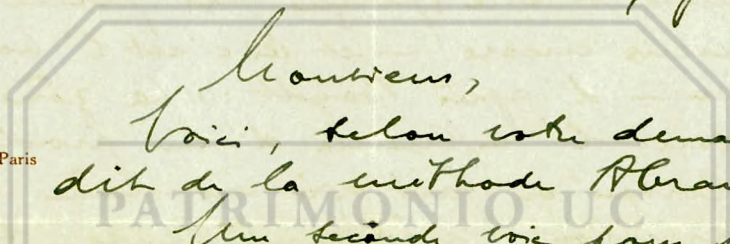 Monsieur,
Voici, selon votre dema
Paris
dit de la méthode Abra
PATRIMONIO UC
Une seconde voie pour